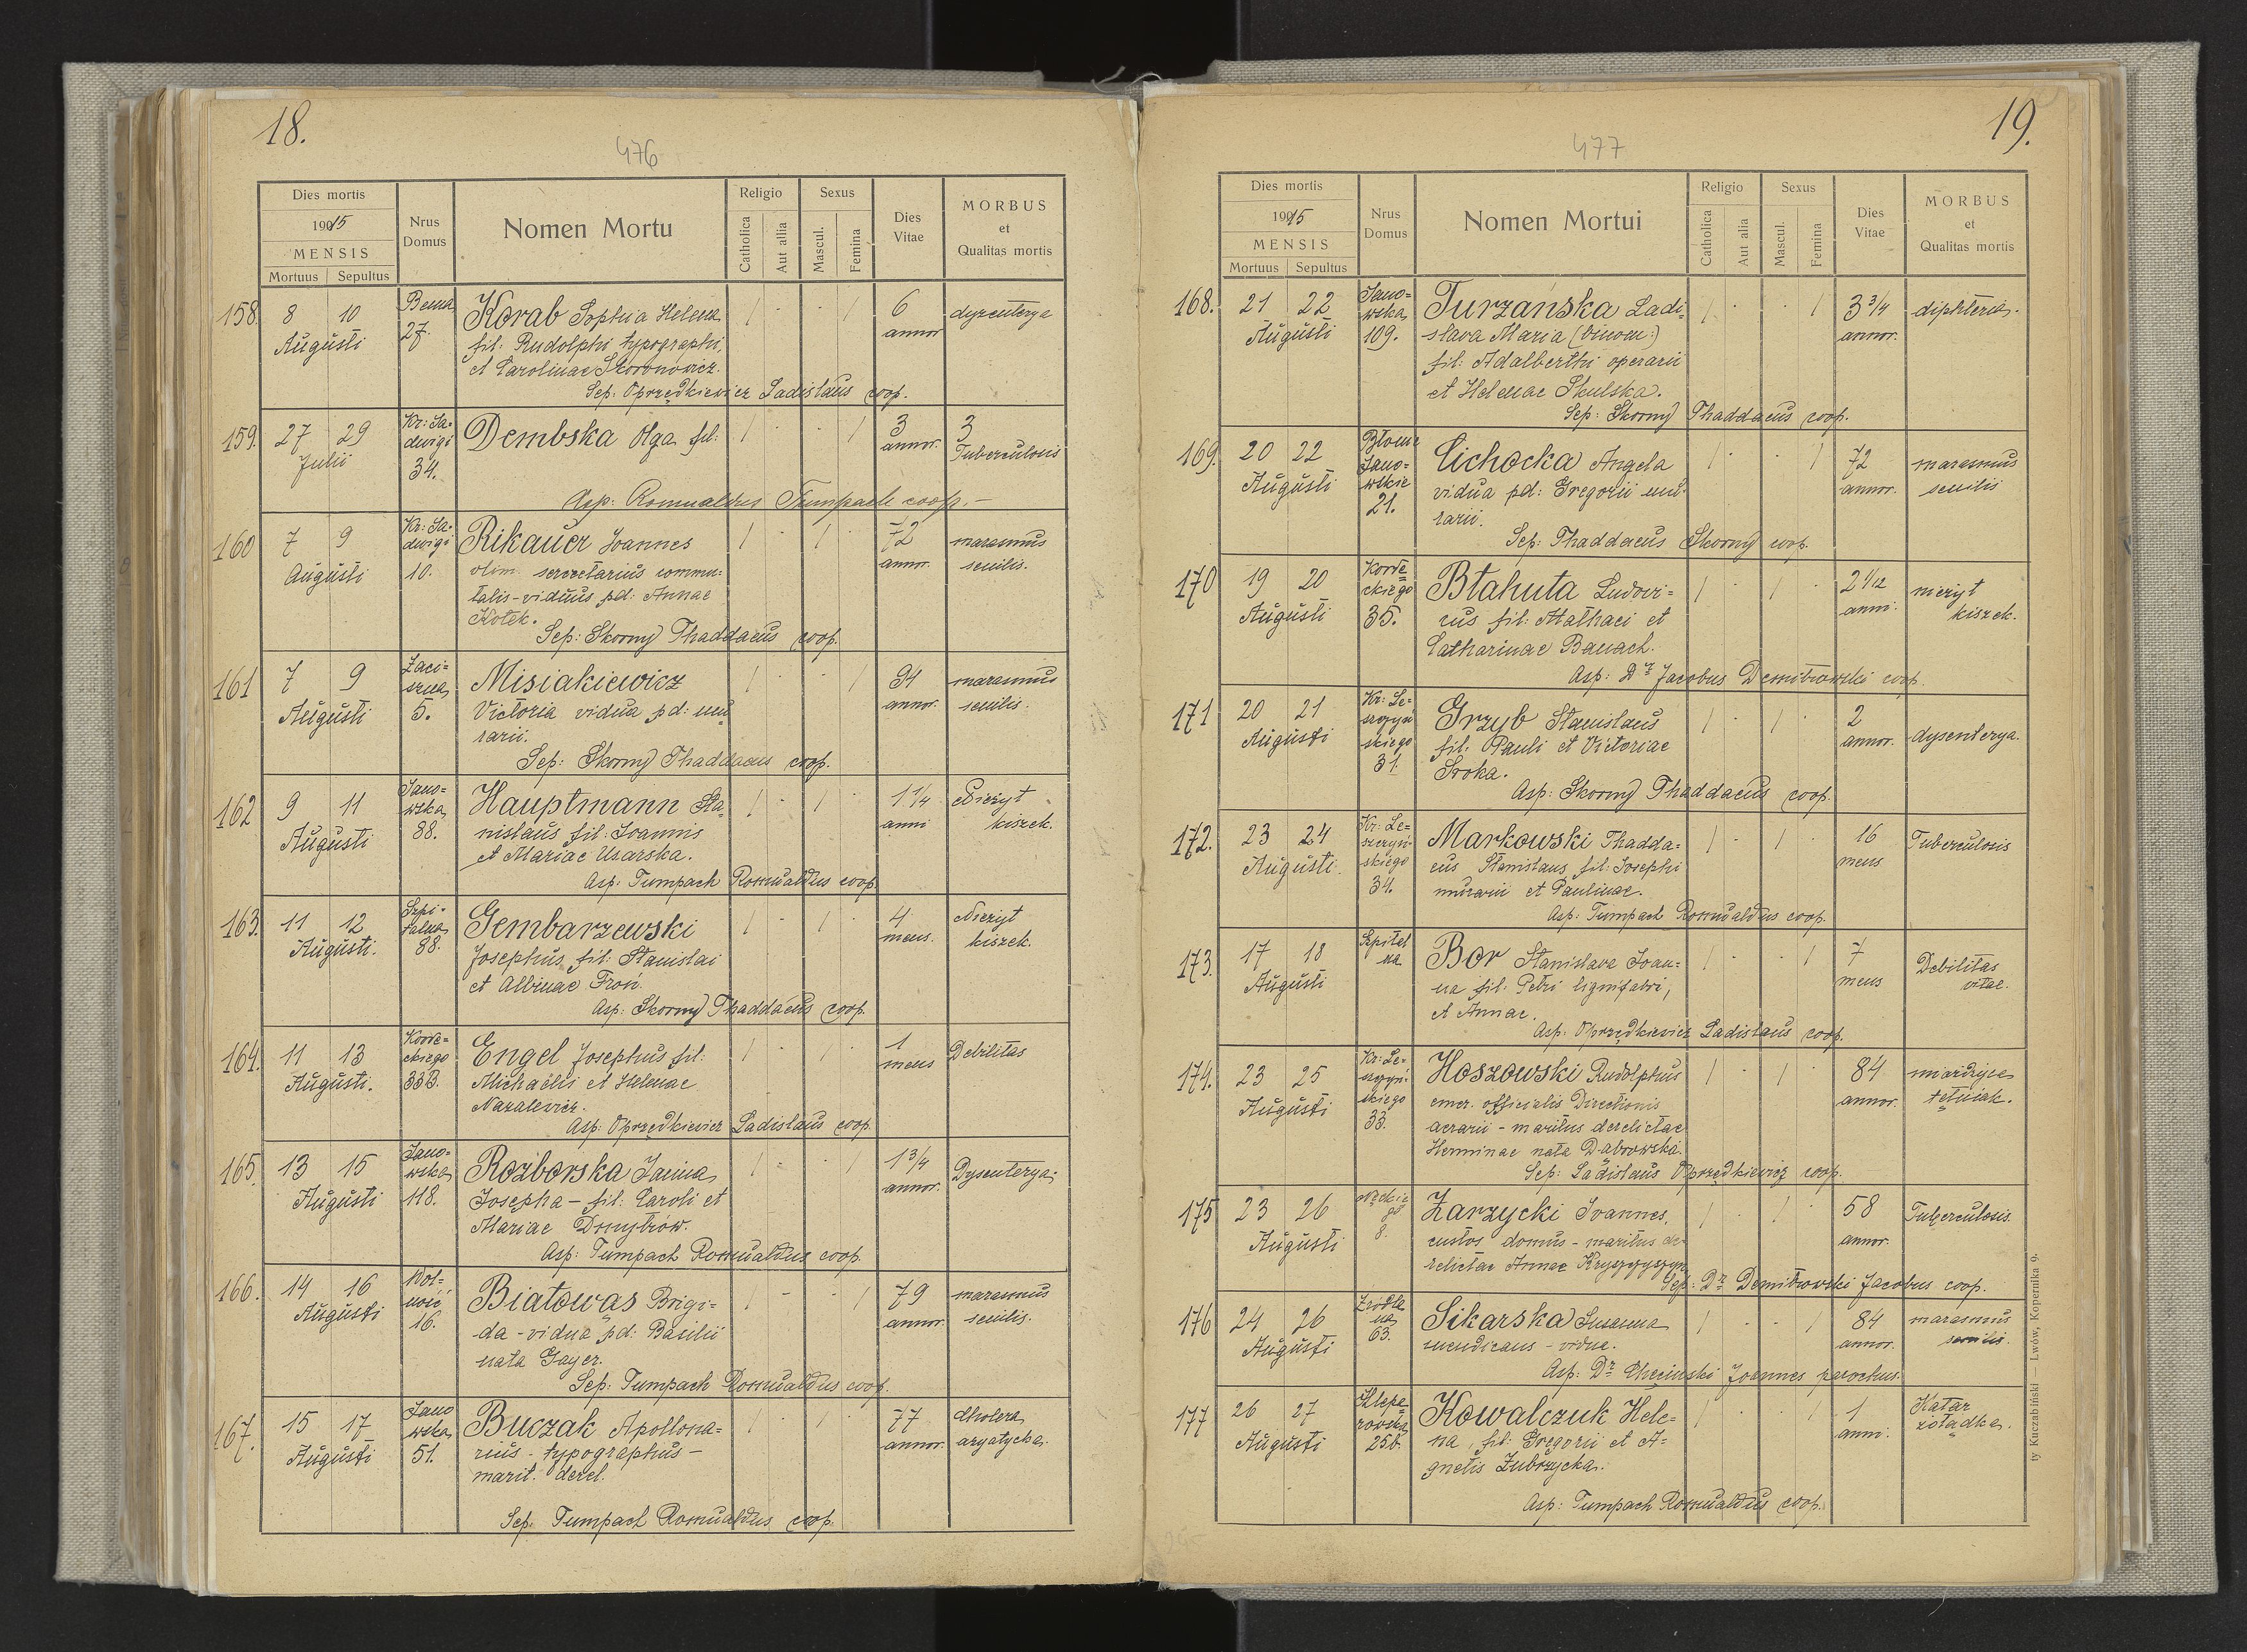 18.
476
Dies mortis
1915
MENSIS
Mortuus Sepultus
Nrus Domus
Nomen Mortu
Religio
Catholica
Aut allia
Sexus
Mascul.
Femina
Dies Vitae
MORBUS
et
Qualitas mortis
158. 8 10 Bema Korab Sophia Helena 1 · · 1 6 dyzenterya
Augusti 27. fil: Rudolphi typographi, annor
et Carolinae Skoronowicz.
Sep: Oprzędkiewicz Ladislaus coop.
159. 27 29 Kr: Ja- Dembska Olga fil: 1 · · 1 3 3
Julii dwigi annor. Tuberculosis
34.
Asp: Romualdus Tumpach coop. —
160 7 9 Kr: Ja- Rikauer Joannes 1 · 1 · 72 marasmus
Augusti dwigi olim secretarius commu= annor. senilis.
10. talis - viduus pd: Annae
Kotek.
Sep: Skorny Thaddaeus coop.
161 7 9 Zaci= Misiakiewicz 1 · · 1 94 marasmus
Augusti szna Victoria vidua pd: mu annor. senilis.
5. rarii.
Sep: Skorny Thaddaeus coop.
162 9 11 Jano= Hauptmann Sta 1 · 1 · 1 1/4 Nieżyt
Augusti wska nislaus fil: Joannis anni kiszek.
88. et Mariae Usarska.
Asp: Tumpach Romualdus coop.
163. 11 12 Szpi- Gembarzewski 1 · 1 · 4 Nieżyt
Augusti. talna Josephus fil: Stanislai mens. kiszek.
88. et Albinae Froń.
Asp: Skorny Thaddaeus coop.
164. 11 13 Korde= Engel Josephus fil: 1 · 1 · 1 Debilitas
Augusti. ckiego Michaëlis et Helenae mens
33B. Nazalewicz.
Asp: Oprzędkiewicz Ladislaus coop.
165. 13 15 Jano= Rozborska Janina 1 · · 1 1 3/4 Dysenterya.
Augusti wska Josepha — fil: Caroli et annor.
118. Mariae Dmytrów.
Asp: Tumpach Romualdus coop.
166. 14 16 Wol= Białowąs Brigi= 1 - - 1 79 marasmus
Augusti ność da - vidua pd: Basilii annor. senilis.
16. nata Gayer.
Sep: Tumpach Romualdus coop.
167. 15 17 Jano Buczak Apollona= 1 · 1 · 77 Cholera
Augusti wska rius - typographus — annor. azyatycka.
51. marit. derel.
Sep. Tumpach Romualdus coop.
19.
477
Dies mortis
1915
MENSIS
Mortuus Sepultus
Nrus Domus
Nomen Mortui
Religio
Catholica
Aut alia
Sexus
Mascul.
Femina
Dies Vitae
MORBUS
et
Qualitas mortis
168. 21 22 Jano= Turzańska Ladi 1 · · 1 3 3/4 diphteria.
Augusti wska slava Maria (binom:) annor.
109. fil: Adalberthi operarii
et Helenae Skulska.
Sep: Skorny Thaddaeus coop.
169. 20 22 Błonie Cichocka Angela 1 · · 1 72 marasmus
Augusti Jano= vidua pd: Gregorii mu- annor. senilis
wskie rarii.
21.
Sep: Thaddaeus Skorny coop.
170 19 20 Korde= Błahuta Ludovi= 1 · 1 · 2 1/12 nieżyt
Augusti ckiego cus fil: Mathaei et anni. kiszek.
35. Catharinae Banach.
Asp: Dr Jacobus Demitrowski coop.
171 20 21 Kr: Le= Grzyb Stanislaus 1 · 1 · 2 dysenterya.
Augusti szczyń skiego fil: Pauli et Victoriae annor.
31. Sroka.
Asp: Skorny Thaddaeus coop.
172. 23 24 Kr: Le= Markowski Thadda= 1 · 1 · 16 Tuberculosis
Augusti. szczyń- skiego eus Stanislaus fil: Josephi mens
34. murarii et Paulinae.
Asp: Tumpach Romualdus coop.
173. 17 18 Szpital Bor Stanislava Joan= 1 · · 1 7 Debilitas
Augusti na na fil: Petri lignifabri, mens vitae.
et Annae.
Asp: Oprzędkiewicz Ladislaus coop.
174. 23 25 Kr: Le= Hoszowski Rudolphus 1 · 1 · 84 miażdżyca
Augusti szczyń- skiego emer. officialis Directionis annor. tętniak.
33. aerarii - maritus derelictae
Herminae nata Dąbrowska.
Sep: Ladislaus Oprzędkiewicz coop.
175 23 26 8. Zarzycki Joannes, 1 · 1 · 58 Tuberculosis.
Augusti custos domus - maritus de- annor.
relictae Annae
Sep: Dr Demitrowski Jacobus coop.
176 24 26 Źródla Sikarska Susanna 1 · · 1 84 marasmus
Augusti na mendicans - vidua. annor. senilis.
63.
Asp: Dr Chęciński Joannes parochus.
177 26 27 Klepa Kowalczuk Hele= 1 · · 1 1 Katar
Augusti rowska na, fil: Gregorii et A= anni. żołądka.
25b. gnetis Zubrzycka.
Asp: Tumpach Romualdus coop.
ty Kuczabiński — Lwów, Kopernika 9.